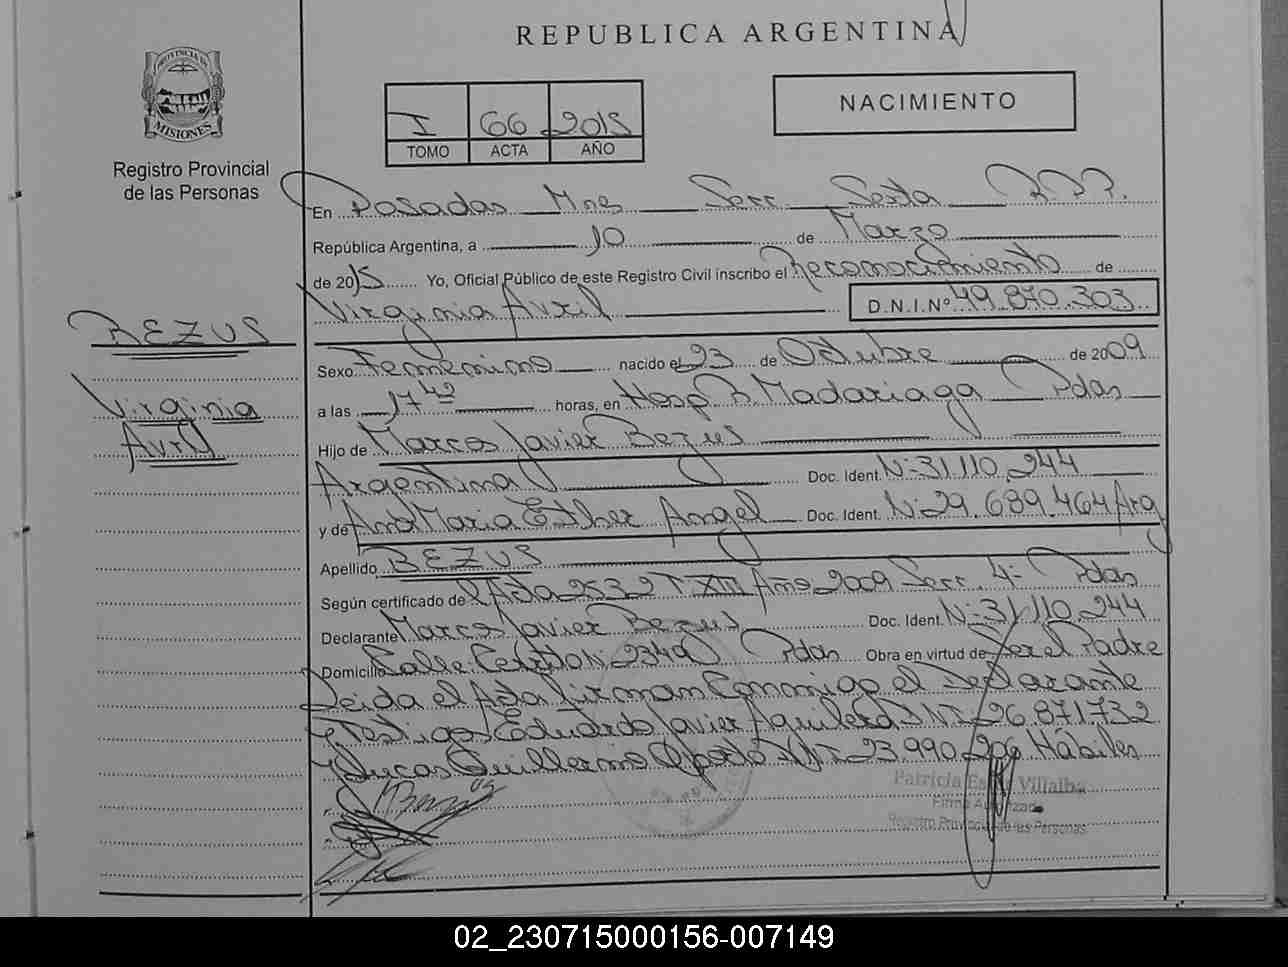 REPUBLICA ARGENTINA
PROVINCIA DE
MISIONES
Registro Provincial
de las Personas
I 66 2015
TOMO ACTA AÑO
NACIMIENTO
En Posadas Mnes Secc. Sexta R.P.P.
República Argentina, a 10 de Marzo
de 2015 Yo, Oficial Público de este Registro Civil inscribo el Reconocimiento de
Virginia Avril D.N.I.Nº 49.870.303
BEZUS
Sexo Femenino nacido el 23 de Octubre de 2009
Virginia
a las 17 42 horas, en Hosp R Madariaga Pdas
Avril
Hijo de Marcos Javier Bezus
Argentina Doc. Ident. Nº 31.110.244
y de Ana Maria Esther Angel Doc. Ident. Nº 29.689.464 Arg
Apellido BEZUS
Según certificado de Acta 2532 T XIII Año 2009 Secc 4º Pdas
Declarante Marcos Javier Bezus Doc. Ident. Nº 31.110.244
Domicilio Calle Cerrito Nº 2349 Pdas Obra en virtud de Ser el Padre
Leida el Acta firman Conmigo el Declarante
y Testigos Eduardo Javier Aguilera DNI 26.871.732
y Lucas Guillermo DNI 23.990.206 Hábiles
Patricia Villalba
Firma Autorizada
Registro Provincial de las Personas
02_230715000156-007149